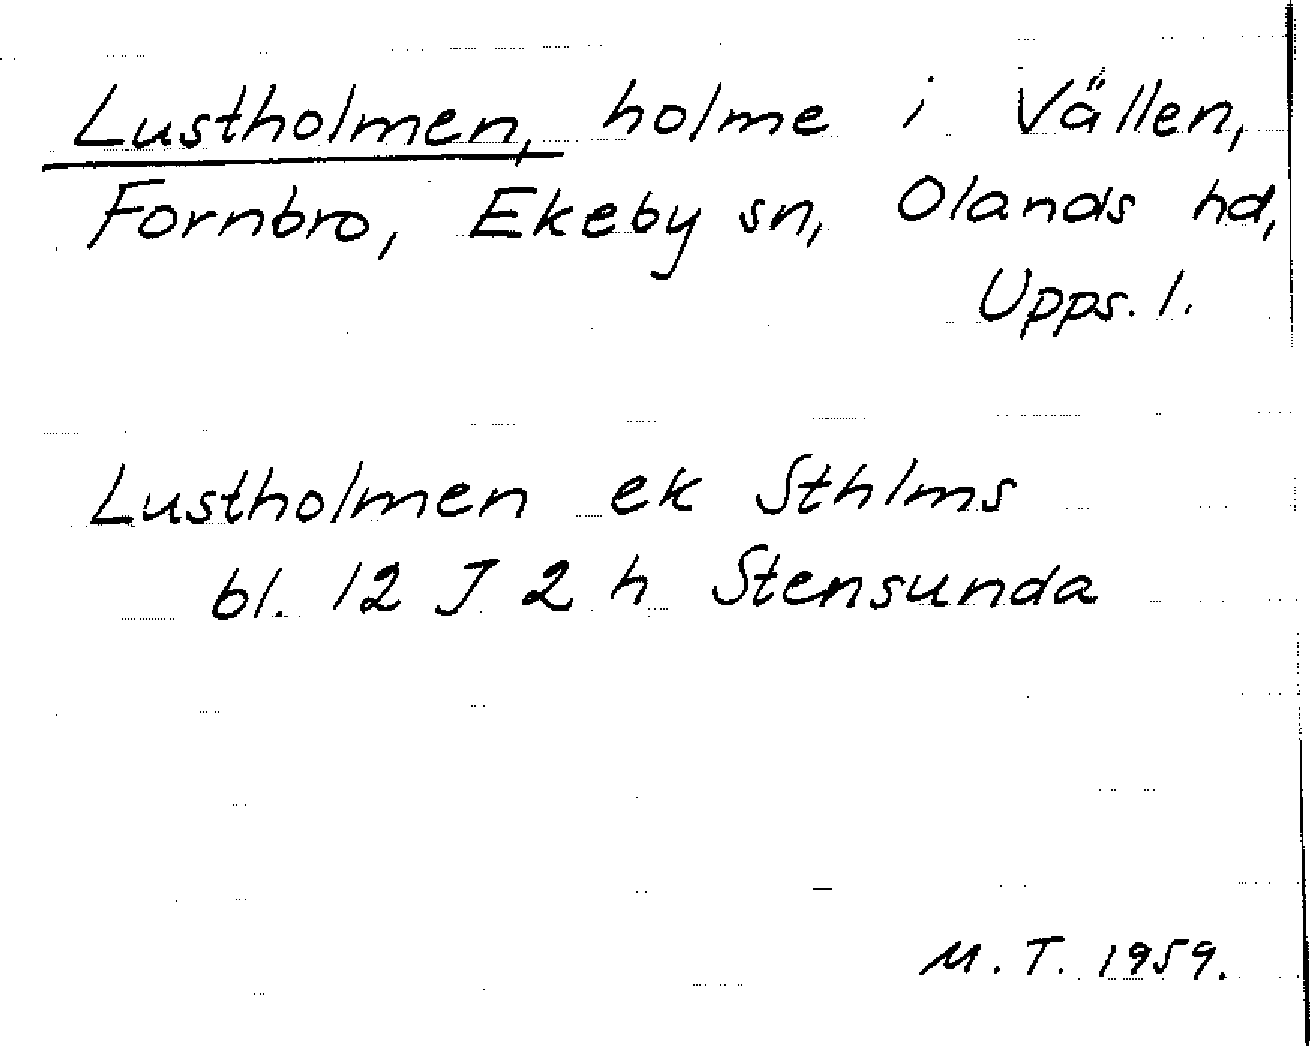 Lustholmen, holme i Vällen,
Fornbro, Ekeby sn, Olands hd,
Upps. l.
Lustholmen ek Sthlms
bl. 12 J 2 h Stensunda
M. T. 1959.